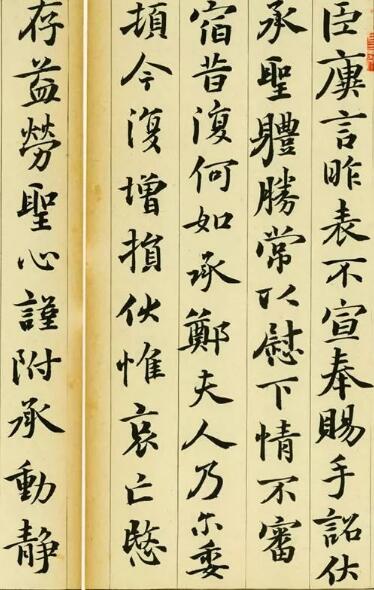 臣廙言昨表不宣奉賜手詔伏
承聖體勝常以慰下情不審
宿昔復何如承鄭夫人乃尓委
頓今復增損伏惟哀亡愍
存益勞聖心謹附承動静